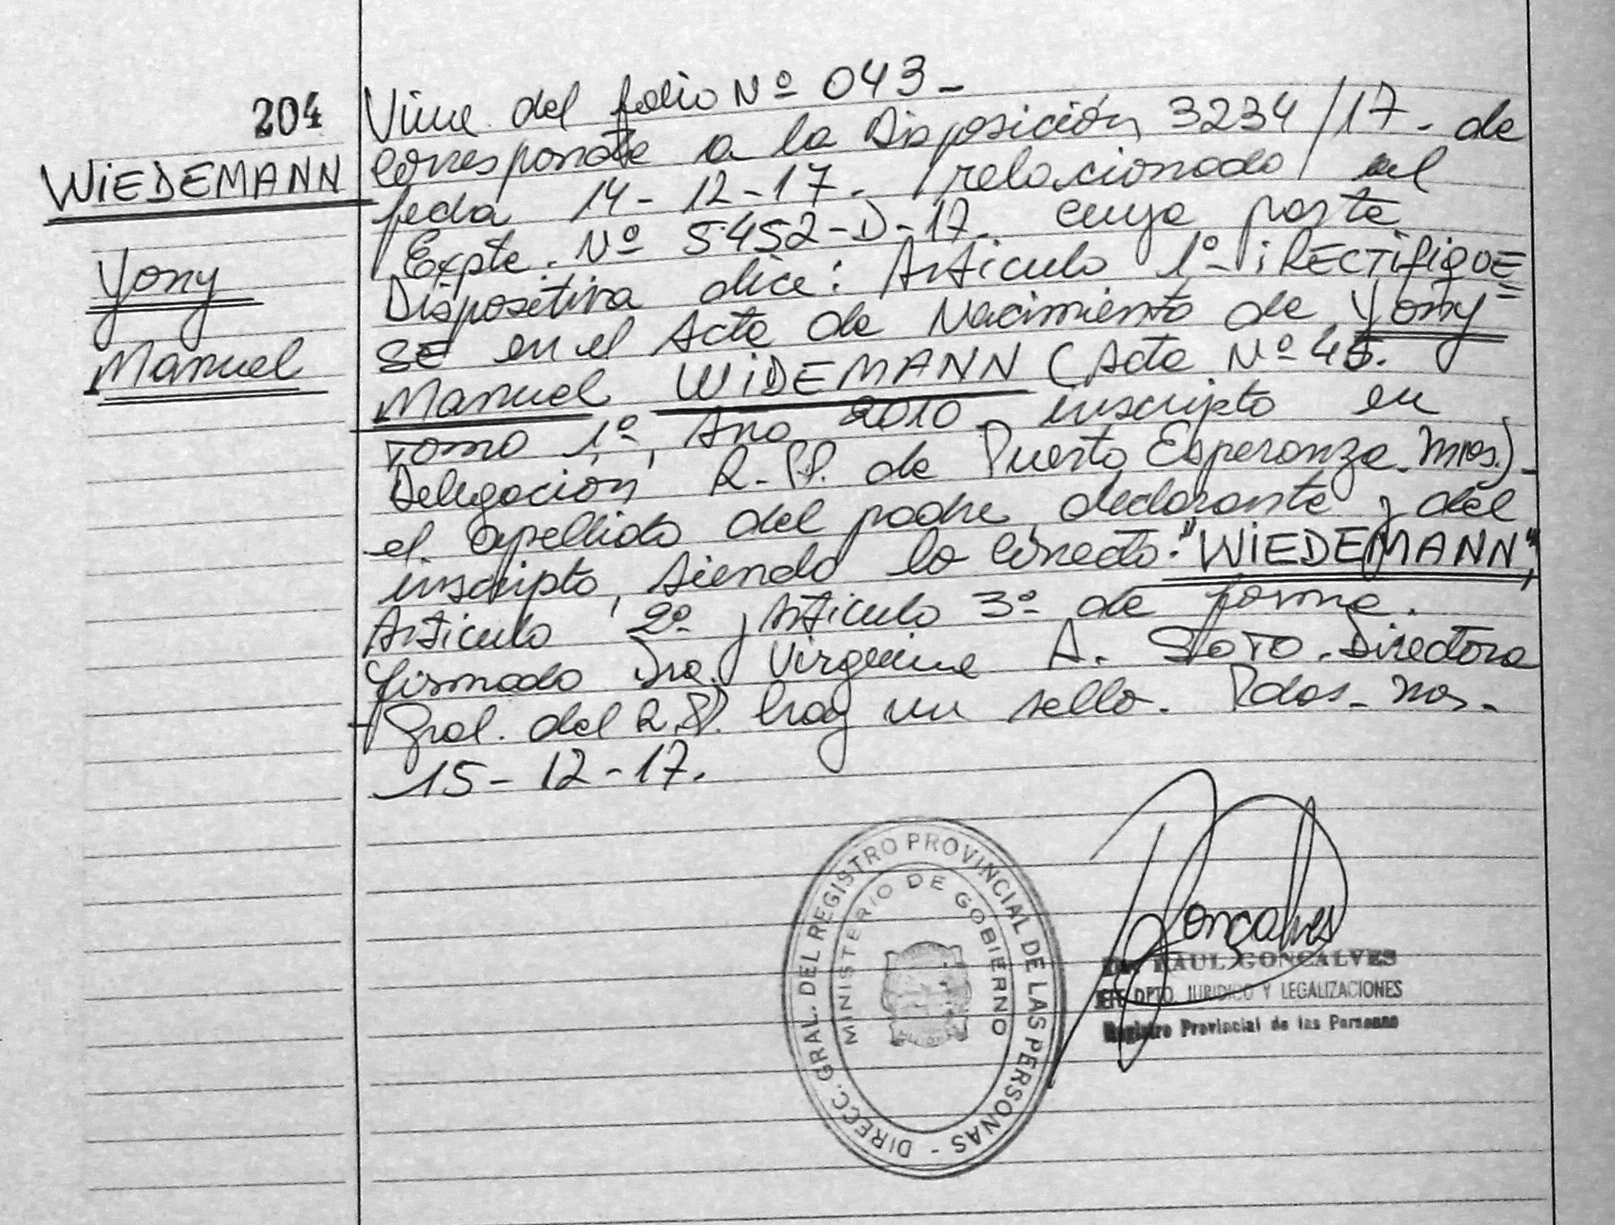 204
WIEDEMANN
Yony
Manuel
Viene del folio Nº 043-
corresponde a la Disposición 3234/17. de
fecha 14-12-17. relacionado al
Expte. Nº 5452-D-17. cuya parte
Dispositiva dice: Artículo 1º-: RECTIFIQUE=
SE en el Acta de Nacimiento de Yony
Manuel WIDEMANN (Acta Nº 45.
Tomo 1º, Año 2010 inscripto en
Delegación R.P.P. de Puerto Esperanza. Mnes.)-
el apellido del padre declarante y del
inscripto, siendo lo correcto: "WIEDEMANN",
Artículo 2º y Artículo 3º de forma.
firmado Dra. Virginia A. SOTO. Directora
Gral. del R.P.P. hay un sello. Pdas. Mns.-
15-12-17.
DIRECC. GRAL. DEL REGISTRO PROVINCIAL DE LAS PERSONAS -
MINISTERIO DE GOBIERNO
Goncalves
Dr. RAUL GONCALVES
JEFE DPTO. JURIDICO Y LEGALIZACIONES
Registro Provincial de las Personas